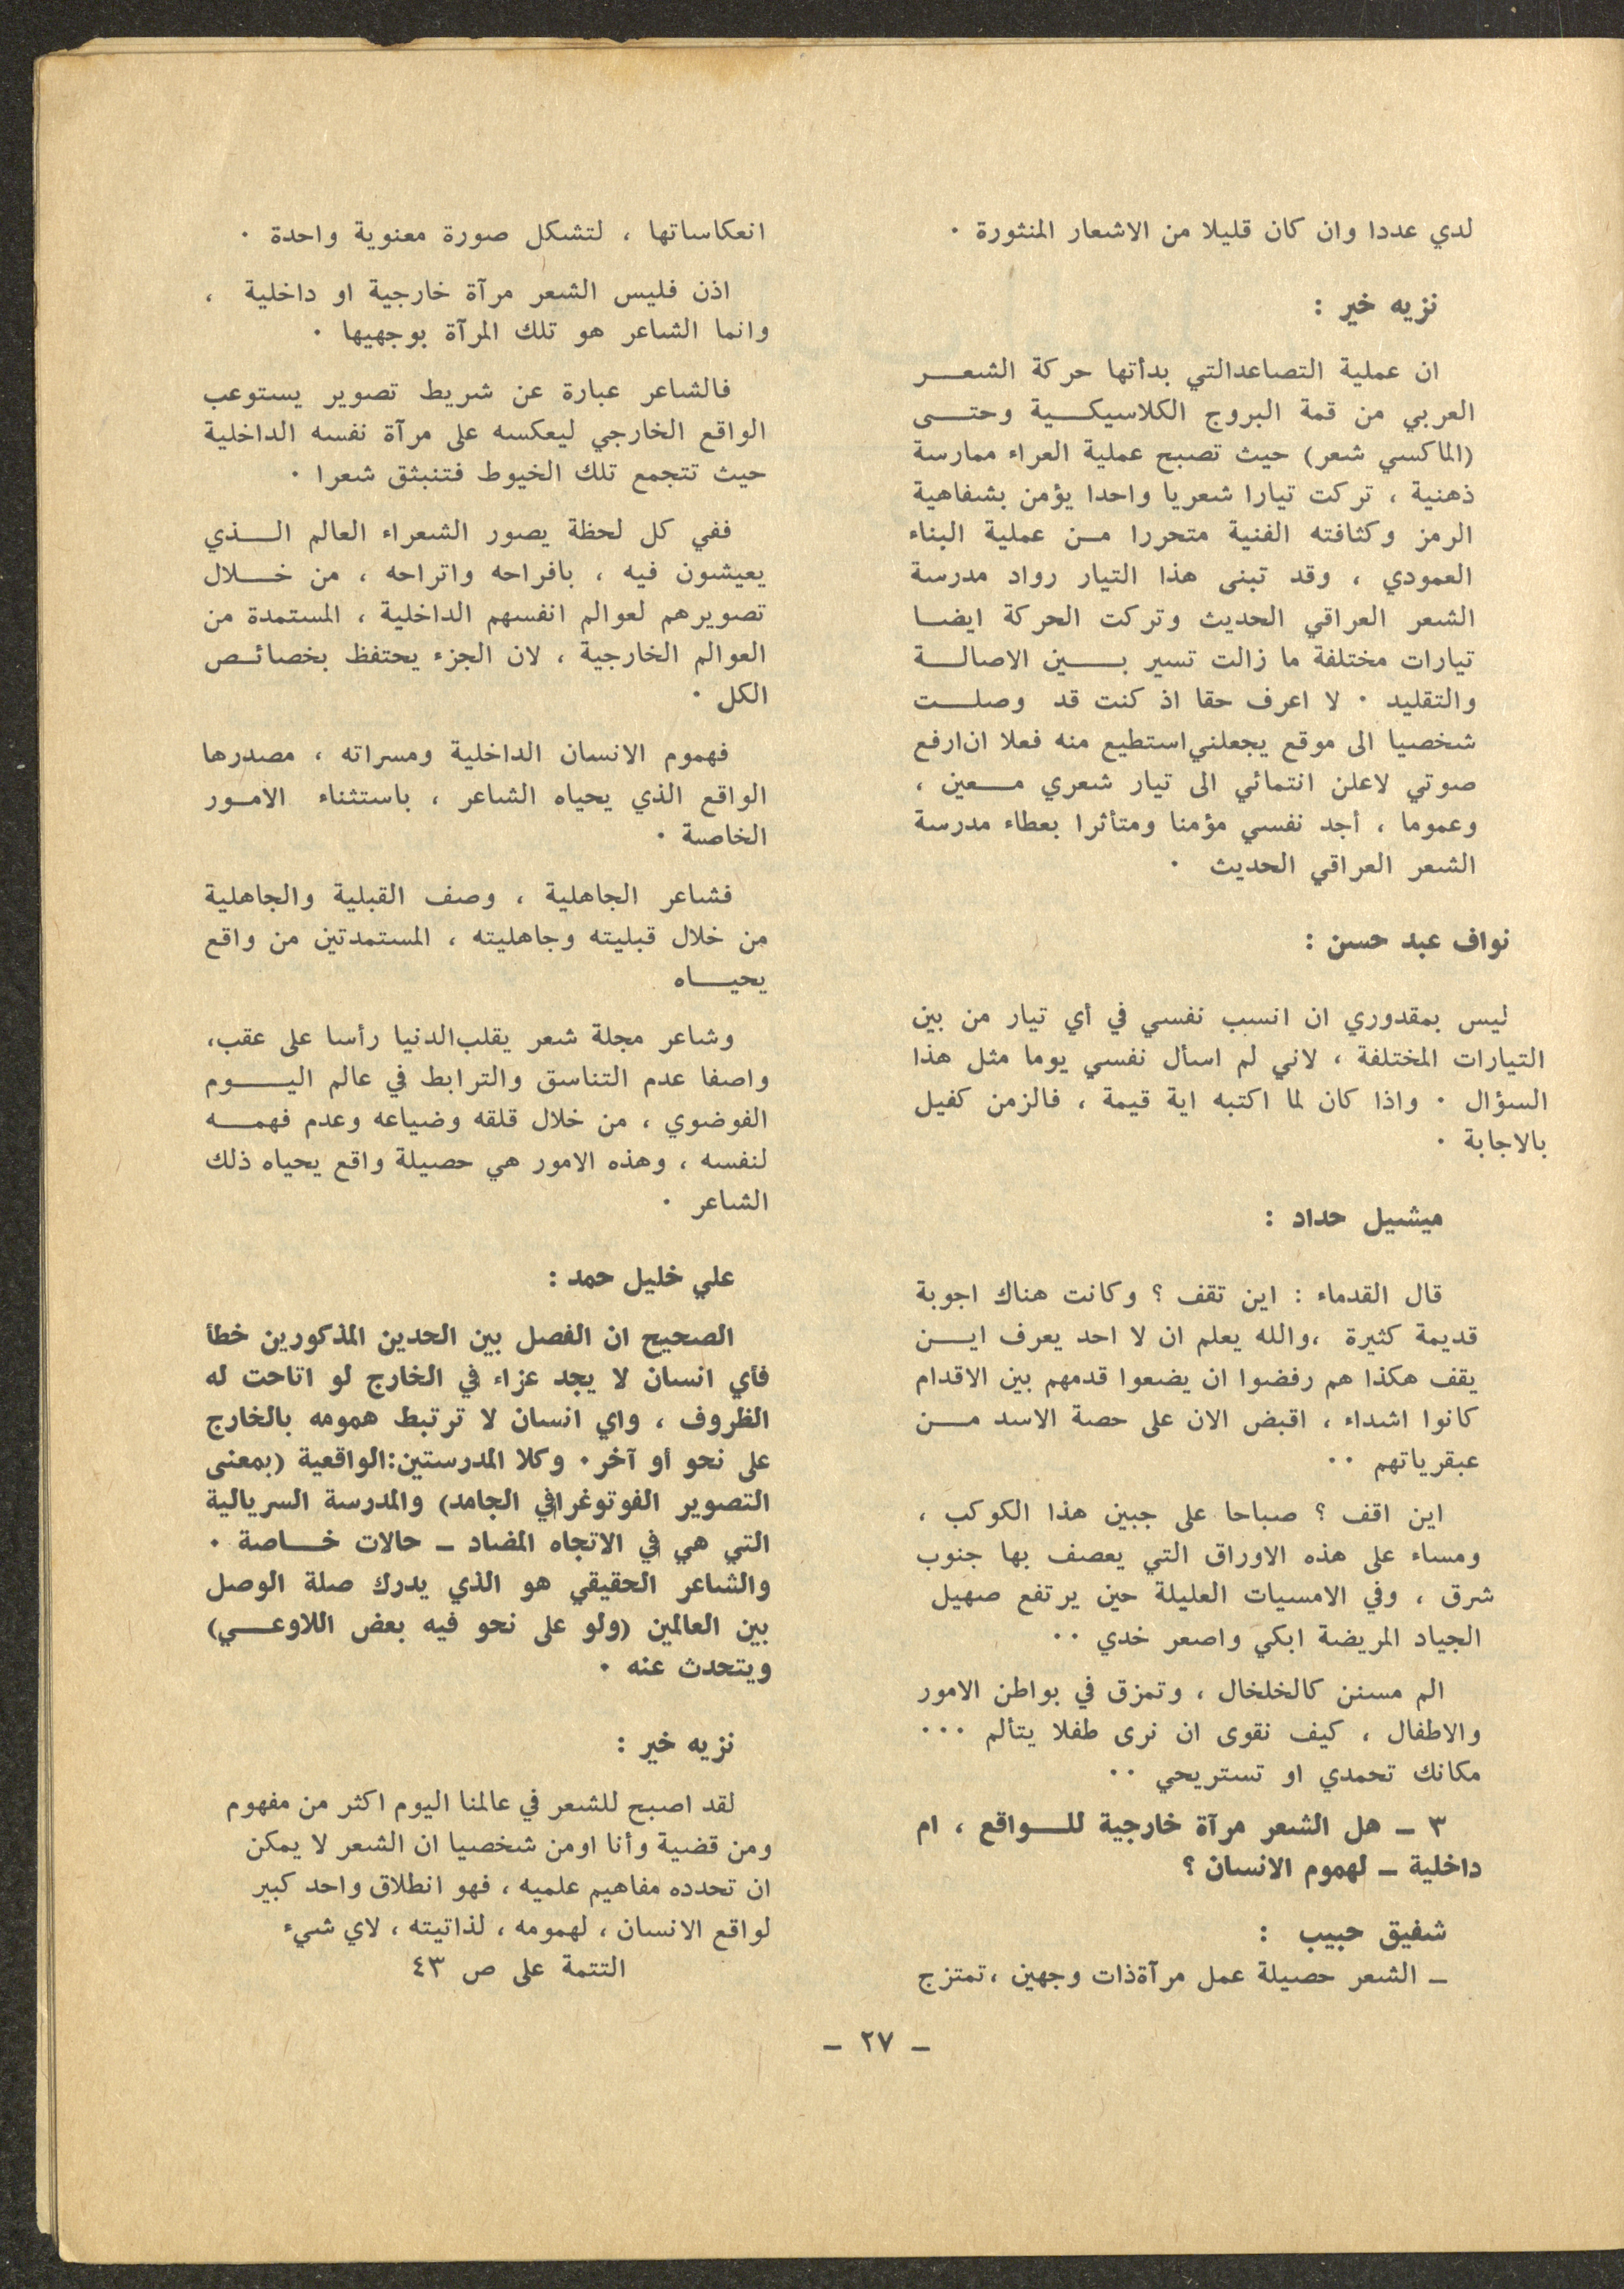 لدي عددا وان كان قليلا من الاشعار المنثورة ٠
نزيه خير :
ان عملية التصاعدالتي بدأتها حركة الشعر
العربي من قمة البروج الكلاسيكية وحتى
(الماكسي شعر) حيث تصبح عملية العراء ممارسة
ذهنية ، تركت تيارا شعريا واحدا يؤمن بشفاهية
الرمز وكثافته الفنية متحررا من عملية البناء
العمودي ، وقد تبنى هذا التيار رواد مدرسة
الشعر العراقي الحديث وتركت الحركة ايضا
تيارات مختلفة ما زالت تسير بين الاصالة
والتقليد ٠ لا اعرف حقا اذ كنت قد وصلت
شخصيا الى موقع يجعلني استطيع منه فعلا ان ارفع
صوتي لاعلن انتمائي الى تيار شعري معين ،
وعموما ، أجد نفسي مؤمنا ومتأثرا بعطاء مدرسة
الشعر العراقي الحديث ٠
نواف عبد حسن :
ليس بمقدوري ان انسب نفسي في أي تيار من بين
التيارات المختلفة ، لاني لم اسأل نفسي يوما مثل هذا
السؤال ٠ واذا كان لما اكتبه اية قيمة ، فالزمن كفيل
بالاجابة ٠
ميشيل حداد :
قال القدماء : اين تقف ؟ وكانت هناك اجوبة
قديمة كثيرة ،والله يعلم ان لا احد يعرف اين
يقف هكذا هم رفضوا ان يضعوا قدمهم بين الاقدام
كانوا اشداء ، اقبض الان على حصة الاسد من
عبقرياتهم ٠٠
اين اقف ؟ صباحا على جبين هذا الكوكب ،
ومساء على هذه الاوراق التي يعصف بها جنوب
شرق ، وفي الامسيات العليلة حين يرتفع صهيل
الجياد المريضة ابكي واصعر خدي ٠٠
الم مسنن كالخلخال ، وتمزق في بواطن الامور
والاطفال ، كيف نقوى ان نرى طفلا يتألم ٠٠٠
مكانك تحمدي او تستريحي ٠٠
٣ ـ هل الشعر مرآة خارجية للواقع ، ام
داخلية ـ لهموم الانسان ؟
شفيق حبيب :
ـ الشعر حصيلة عمل مرآةذات وجهين ،تمتزج
انعكاساتها ، لتشكل صورة معنوية واحدة ٠
اذن فليس الشعر مرآة خارجية او داخلية ،
وانما الشاعر هو تلك المرآة بوجهيها ٠
فالشاعر عبارة عن شريط تصوير يستوعب
الواقع الخارجي ليعكسه على مرآة نفسه الداخلية
حيث تتجمع تلك الخيوط فتنبثق شعرا ٠
ففي كل لحظة يصور الشعراء العالم الذي
يعيشون فيه ، بافراحه واتراحه ، من خلال
تصويرهم لعوالم انفسهم الداخلية ، المستمدة من
العوالم الخارجية ، لان الجزء يحتفظ بخصائص
الكل ٠
فهموم الانسان الداخلية ومسراته ، مصدرها
الواقع الذي يحياه الشاعر ، باستثناء الامور
الخاصة ٠
فشاعر الجاهلية ، وصف القبلية والجاهلية
من خلال قبليته وجاهليته ، المستمدتين من واقع
يحياه
وشاعر مجلة شعر يقلب الدنيا رأسا على عقب،
واصفا عدم التناسق والترابط في عالم اليوم
الفوضوي ، من خلال قلقه وضياعه وعدم فهمه
لنفسه ، وهذه الامور هي حصيلة واقع يحياه ذلك
الشاعر ٠
علي خليل حمد :
الصحيح ان الفصل بين الحدين المذكورين خطأ
فأي انسان لا يجد عزاء في الخارج لو اتاحت له
الظروف ، واي انسان لا ترتبط همومه بالخارج
على نحو أو آخر٠ وكلا المدرستين:الواقعية (بمعنى
التصوير الفوتوغرافي الجامد) والمدرسة السريالية
التي هي في الاتجاه المضاد ـ حالات خاصة ٠
والشاعر الحقيقي هو الذي يدرك صلة الوصل
بين العالمين (ولو على نحو فيه بعض اللاوعي)
ويتحدث عنه ٠
نزيه خير :
لقد اصبح للشعر في عالمنا اليوم اكثر من مفهوم
ومن قضية وأنا اومن شخصيا ان الشعر لا يمكن
ان تحدده مفاهيم علميه ، فهو انطلاق واحد كبير
لواقع الانسان ، لهمومه ، لذاتيته ، لاي شيء
التتمة على ص ٤٣
ـ ٢٧ ـ